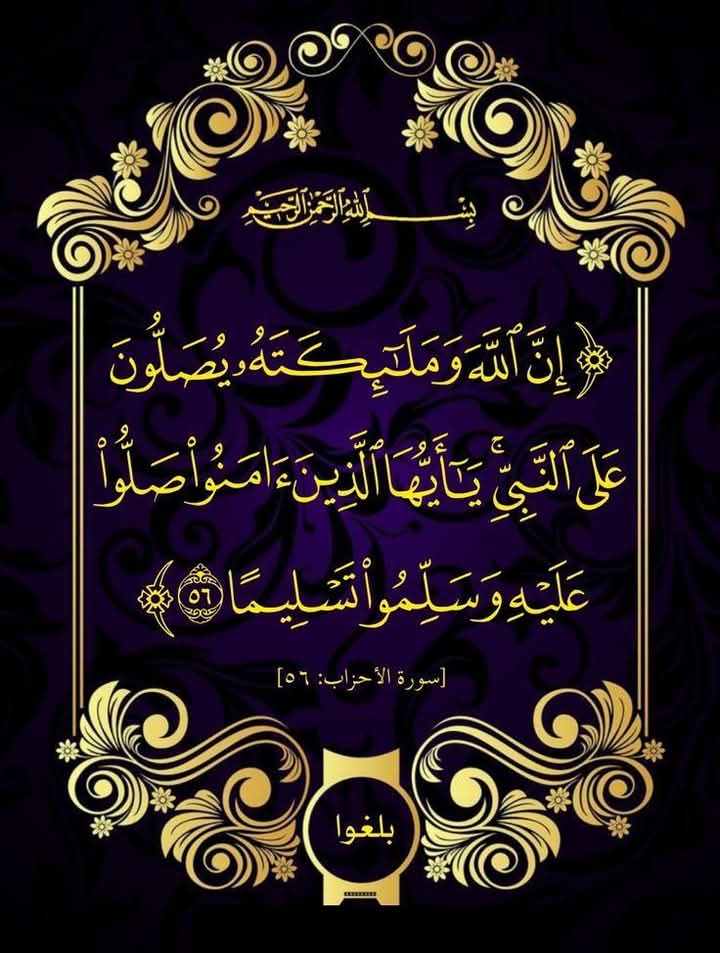 بِسْمِ اللَّهِ الرَّحْمَٰنِ الرَّحِيمِ
﴿ إِنَّ ٱللَّهَ وَمَلَـٰٓئِكَتَهُۥ يُصَلُّونَ
عَلَى ٱلنَّبِيِّۚ يَـٰٓأَيُّهَا ٱلَّذِينَ ءَامَنُوا۟ صَلُّوا۟
عَلَيْهِ وَسَلِّمُوا۟ تَسْلِيمًا ٥٦ ﴾
[سورة الأحزاب: ٥٦]
بلغوا